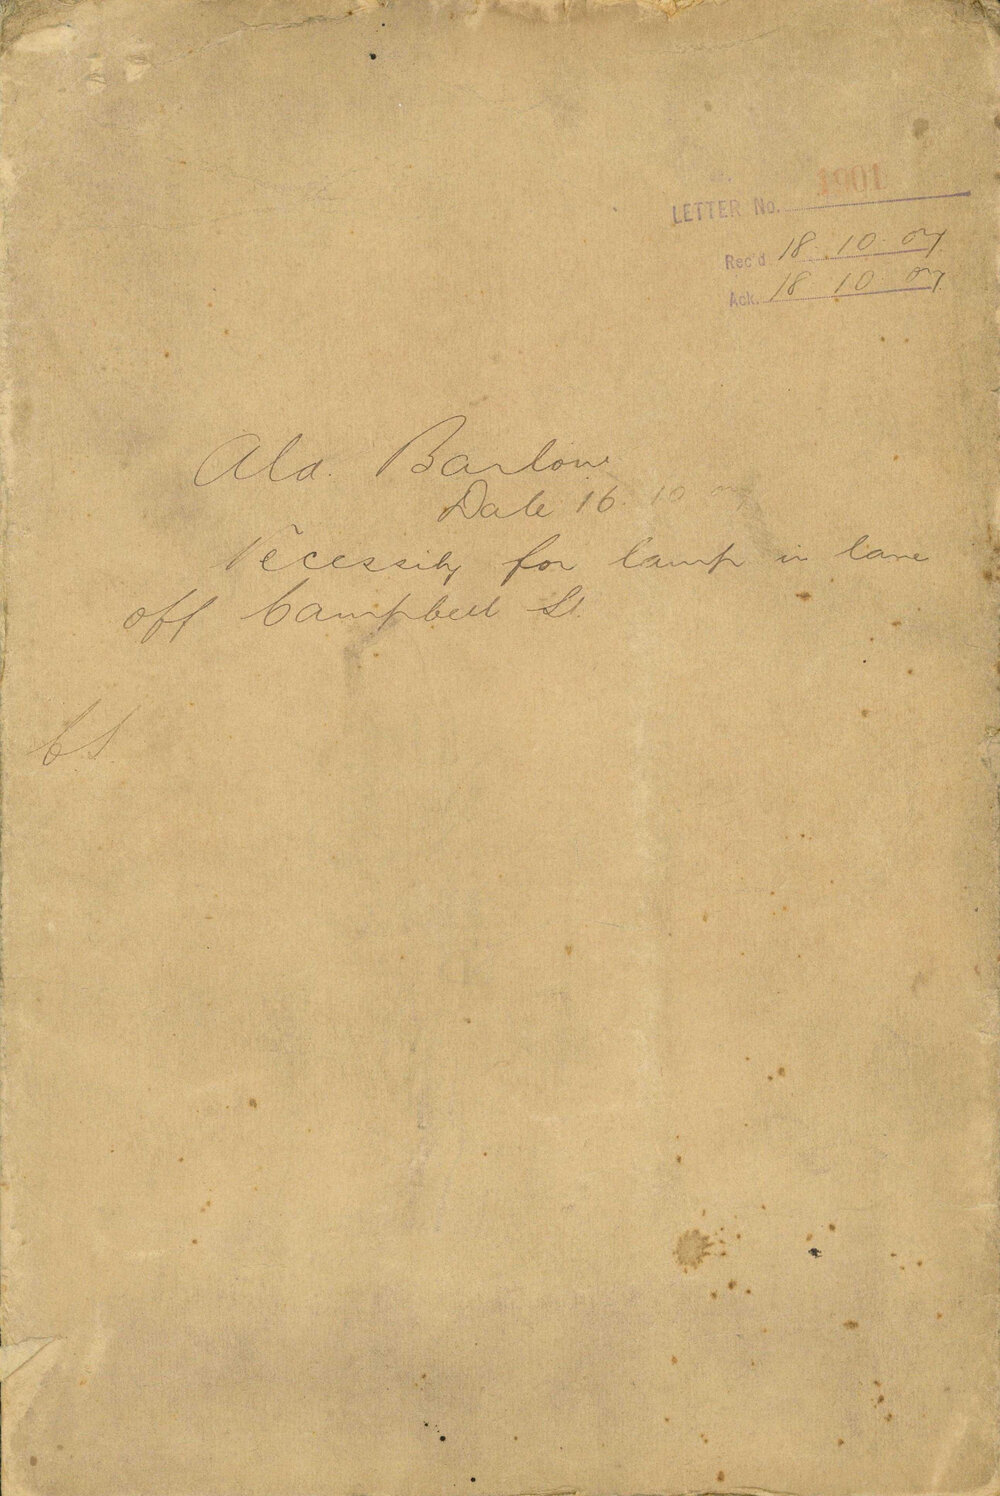 LETTER No. 1901
Rec'd 18. 10. 07
Ack. 18 10 07
Ald. Barlow
Date 16. 10 07
Necessity for lamp in lane
off Campbell St.